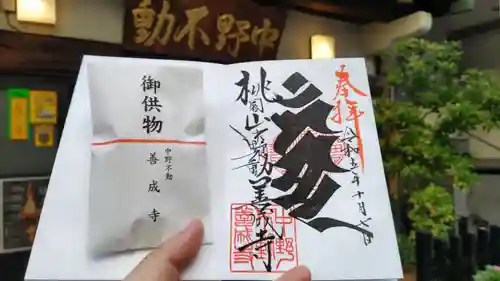 中野不動
御供物
中野不動
善成寺
奉拝
令和五年十月七日
桃園山中野不動善成寺